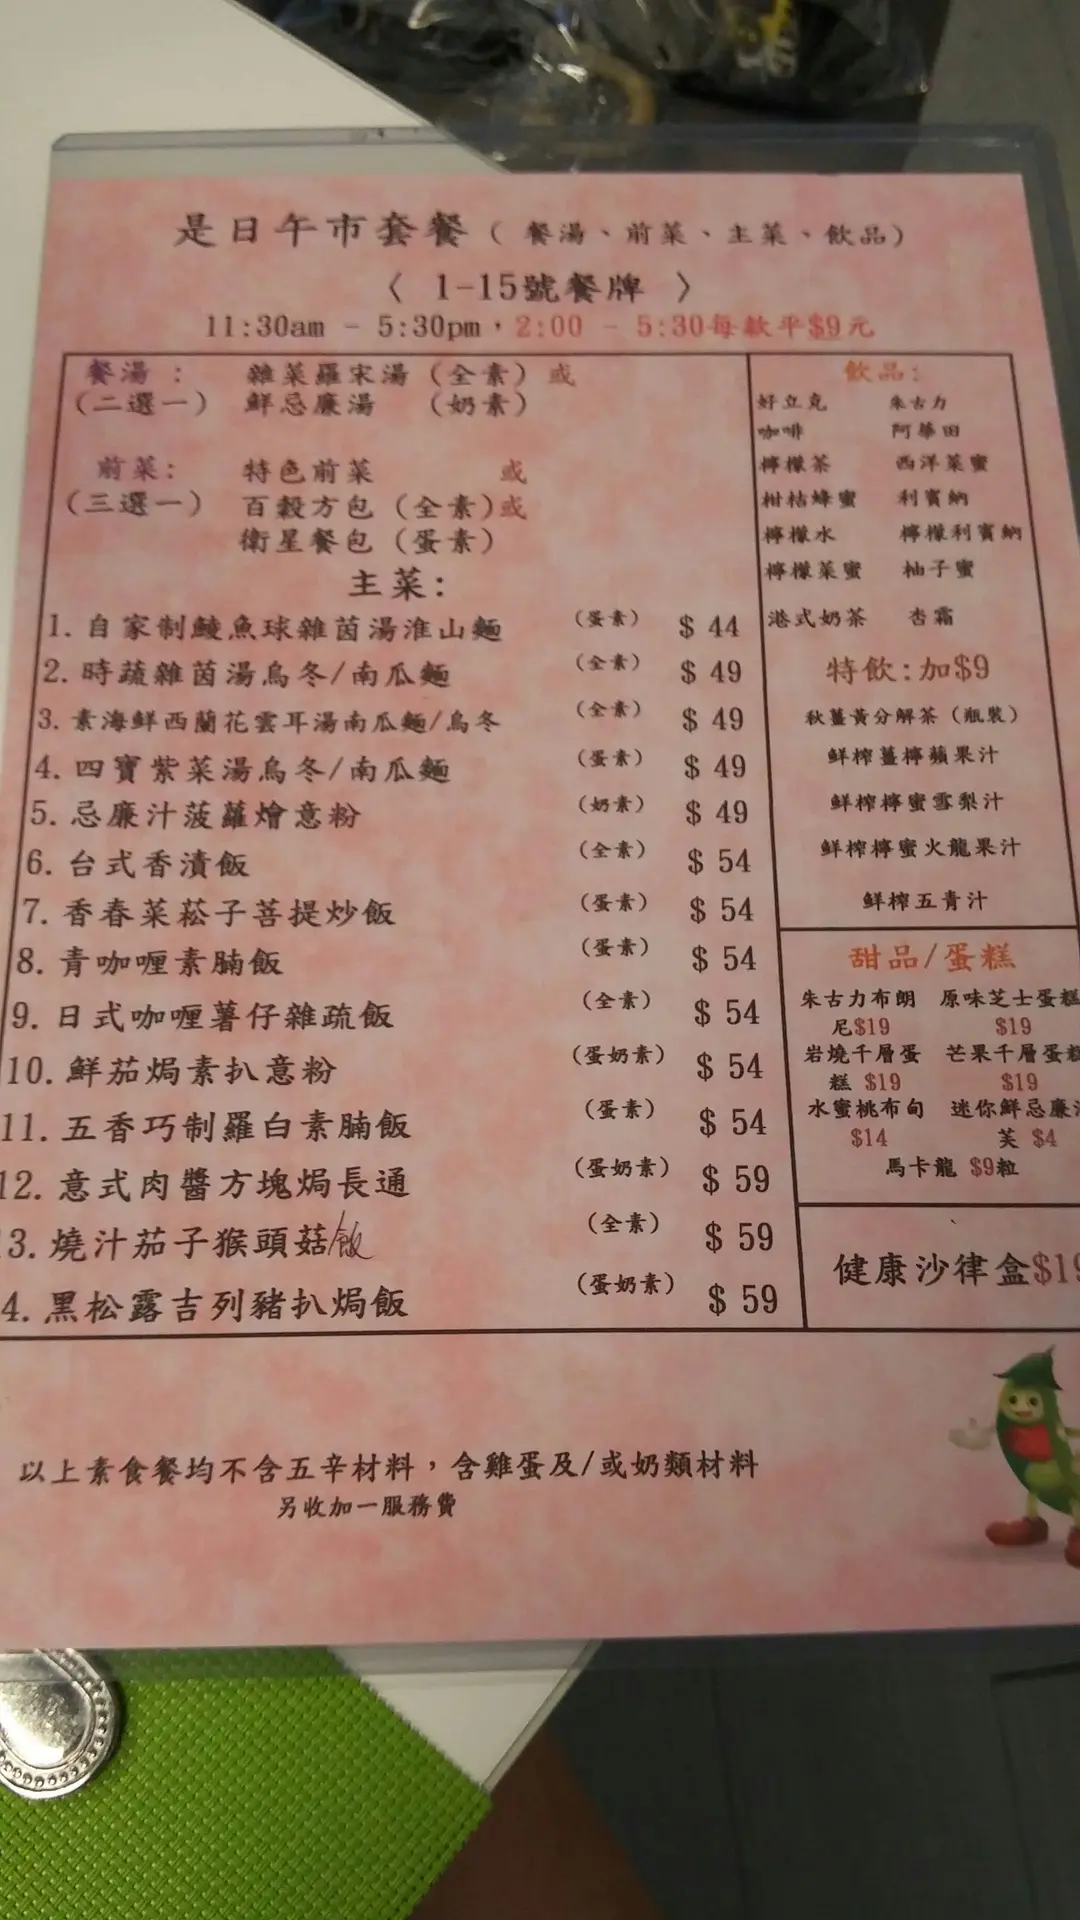 是日午市套餐（餐湯、前菜、主菜、飲品）
〈 1-15號餐牌 〉
11:30am - 5:30pm，2:00 - 5:30每款平$9元
餐湯： 雜菜羅宋湯（全素）或
（二選一） 鮮忌廉湯 （奶素）
前菜： 特色前菜 或
（三選一） 百穀方包（全素)或
衛星餐包（蛋素）
主菜：
1. 自家制鯪魚球雜茵湯淮山麵 （蛋素） $ 44
2. 時蔬雜茵湯烏冬/南瓜麵 （全素） $ 49
3. 素海鮮西蘭花雲耳湯南瓜麵/烏冬 （全素） $ 49
4. 四寶紫菜湯烏冬/南瓜麵 （蛋素） $ 49
5. 忌廉汁菠蘿燴意粉 （奶素） $ 49
6. 台式香漬飯 （全素） $ 54
7. 香春菜菘子菩提炒飯 （蛋素） $ 54
8. 青咖喱素腩飯 （蛋素） $ 54
9. 日式咖喱薯仔雜疏飯 （全素） $ 54
10. 鮮茄焗素扒意粉 （蛋奶素） $ 54
11. 五香巧制羅白素腩飯 （蛋素） $ 54
12. 意式肉醬方塊焗長通 （蛋奶素） $ 59
3. 燒汁茄子猴頭菇/飯 （全素） $ 59
4. 黑松露吉列豬扒焗飯 （蛋奶素） $ 59
飲品：
好立克 朱古力
咖啡 阿華田
檸檬茶 西洋菜蜜
柑桔蜂蜜 利賓納
檸檬水 檸檬利賓納
檸檬菜蜜 柚子蜜
港式奶茶 杏霜
特飲：加$9
秋薑黃分解茶（瓶裝）
鮮榨薑檸蘋果汁
鮮榨檸蜜雪梨汁
鮮榨檸蜜火龍果汁
鮮榨五青汁
甜品/蛋糕
朱古力布朗 原味芝士蛋糕
尼$19 $19
岩燒千層蛋 芒果千層蛋糕
糕 $19 $19
水蜜桃布甸 迷你鮮忌廉泡
$14 芙 $4
馬卡龍 $9粒
健康沙律盒$19
以上素食餐均不含五辛材料，含雞蛋及/或奶類材料
另收加一服務費